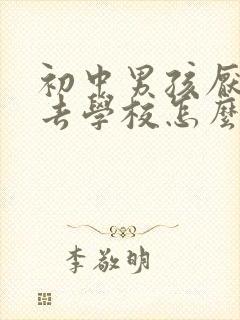 初中男孩厭
去學校怎麼
李敬明